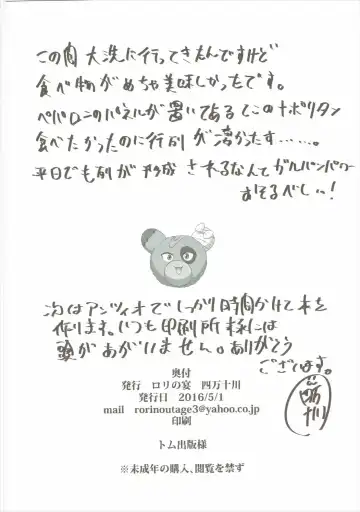 この間大洗に行ってきたんですけど
食べ物がめちゃ美味しかったです。
ペパロニのパネルが置いてあるとこのナポリタン
食べたかったのに行列が凄かったす……。
平日でも列が形成されるなんてガルパンパワー
おそるべしっ!
次はアンツィオでしっかり時間かけて本を
作ります。いつも印刷所様には
頭があがいません。ありがとう
ございます。
四万十川
奥付
発行 ロリの宴 四万十川
発行日 2016/5/1
mail rorinoutage3@yahoo.co.jp
印刷
トム出版様
※未成年の購入、閲覧を禁ず